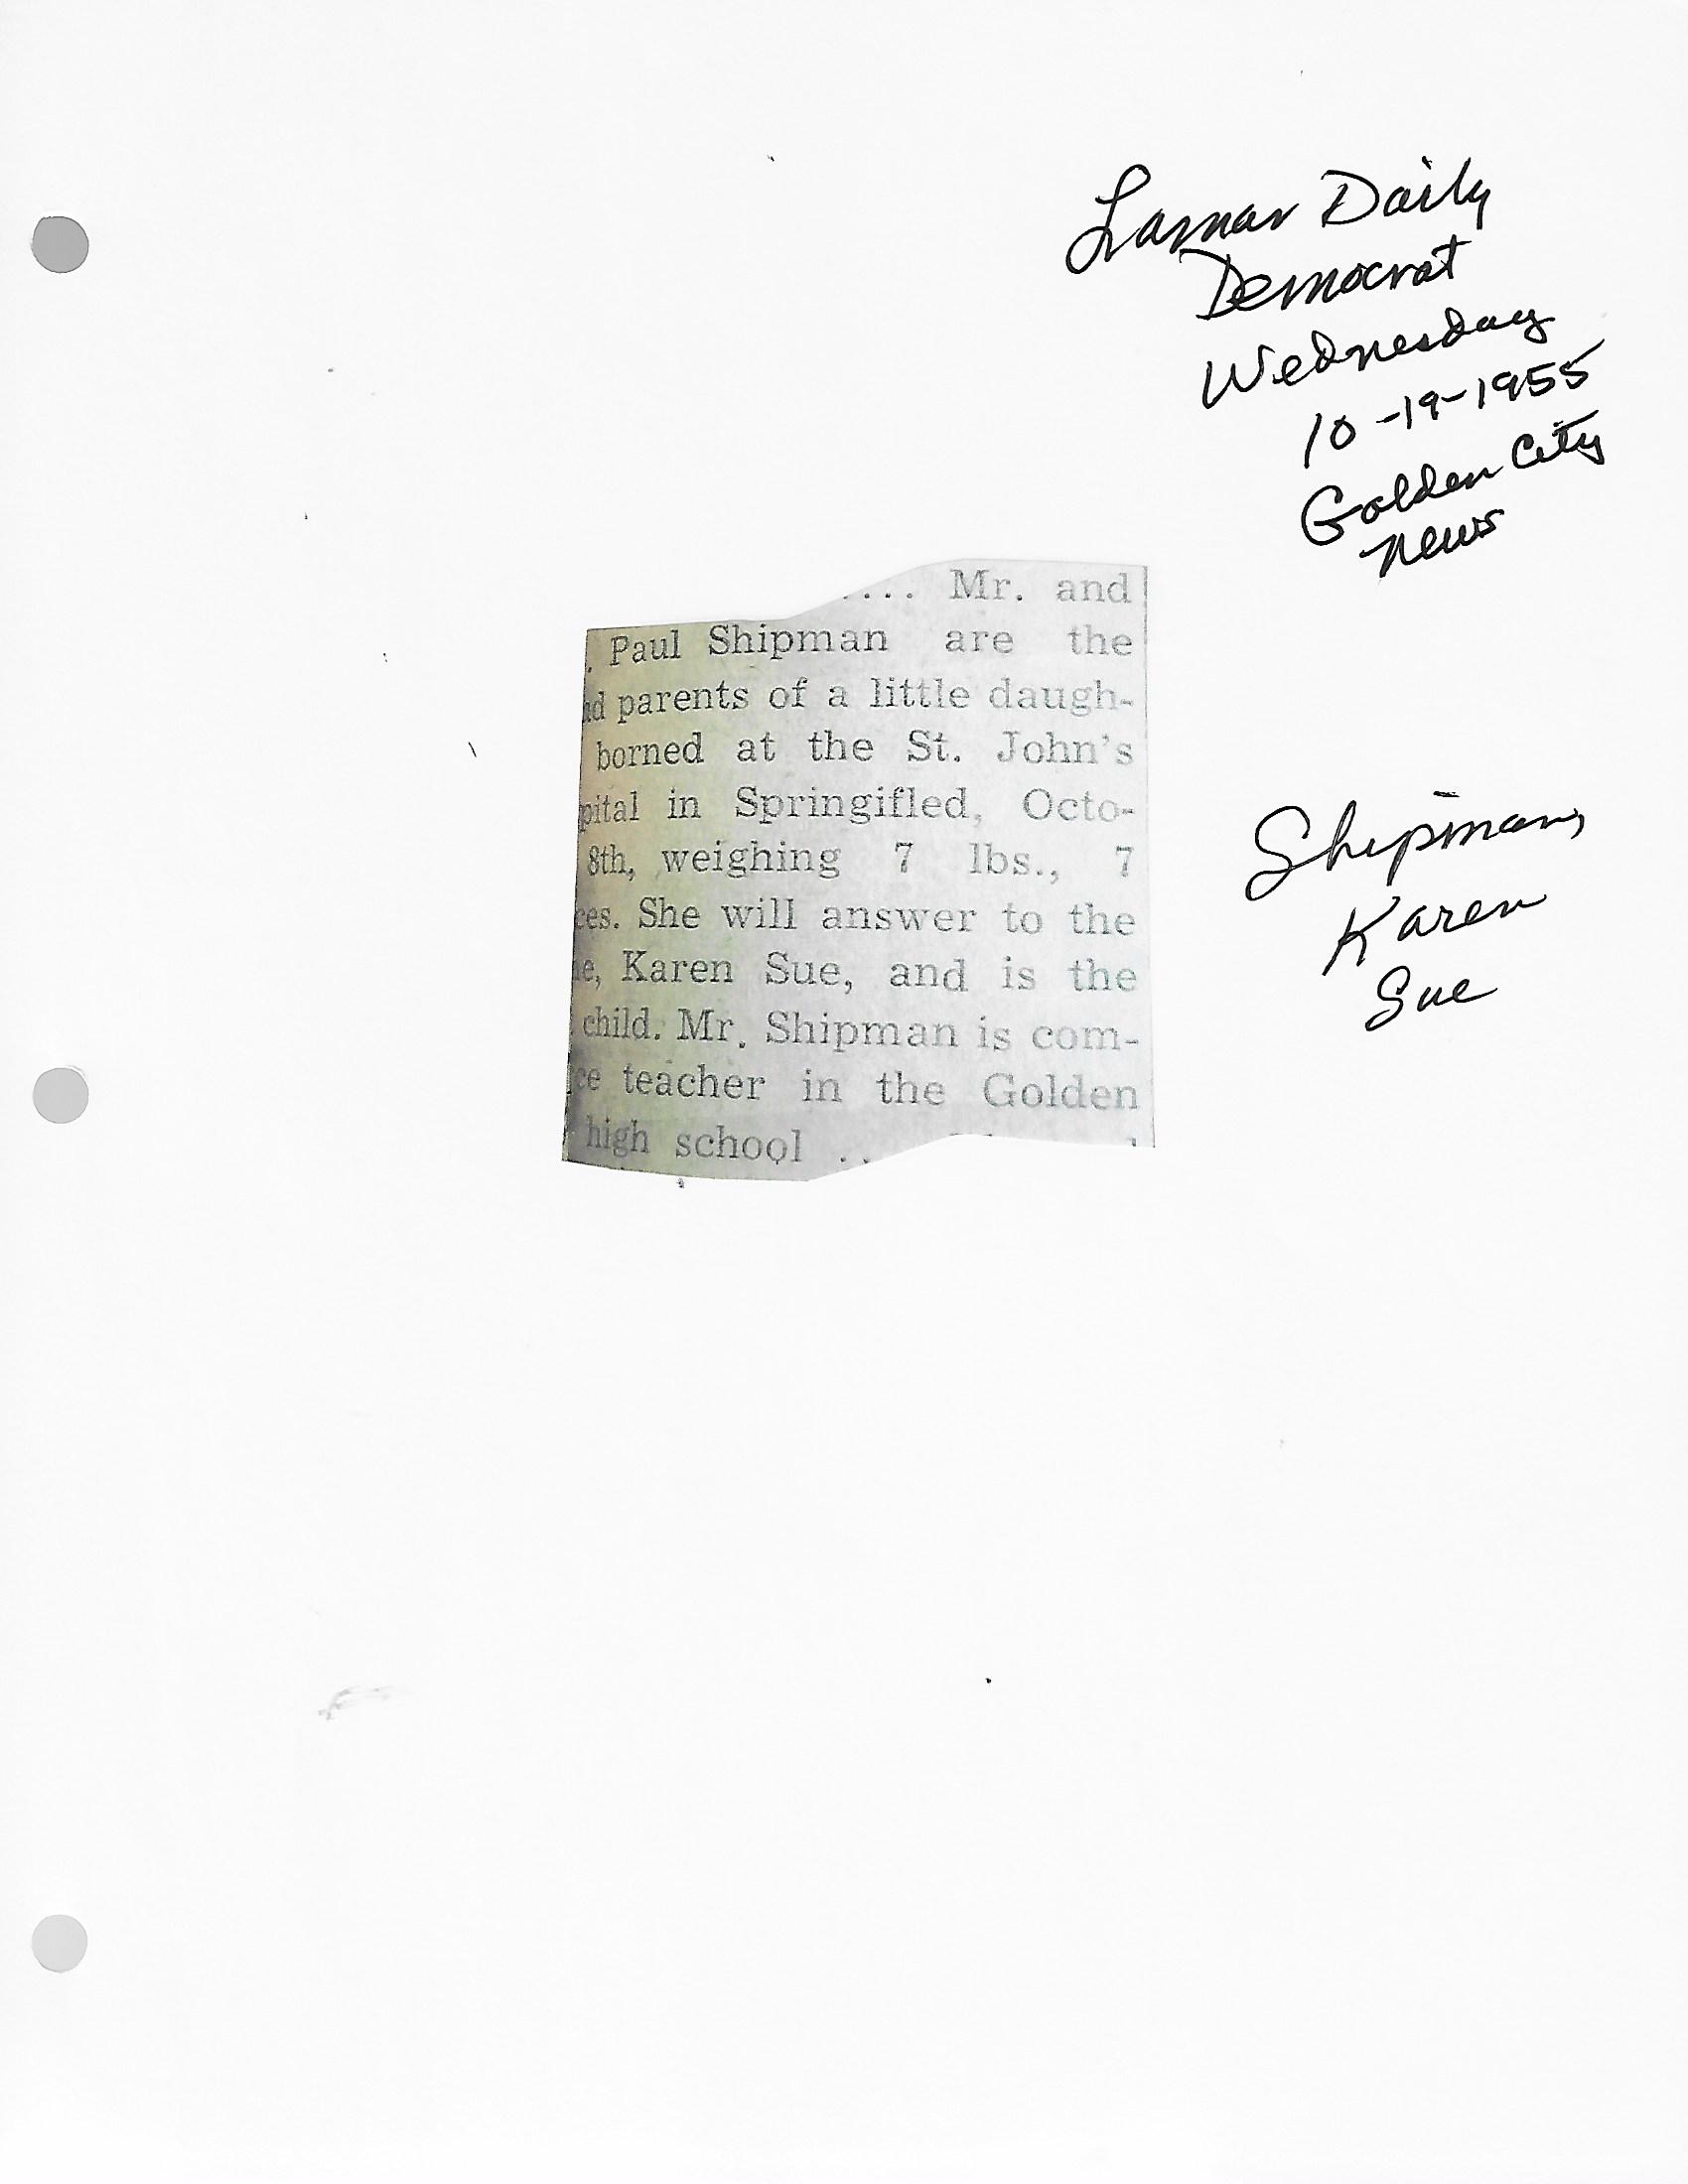 Lamar Daily
Democrat
Wednesday
10-19-1955
Golden City
News
.... Mr. and
. Paul Shipman are the
parents of a little daugh-
borned at the St. John's
pital in Springifled, Octo-
8th, weighing 7 lbs., 7
ces. She will answer to the
e, Karen Sue, and is the
child. Mr. Shipman is com-
ce teacher in the Golden
high school ..
Shipman,
Karen
Sue